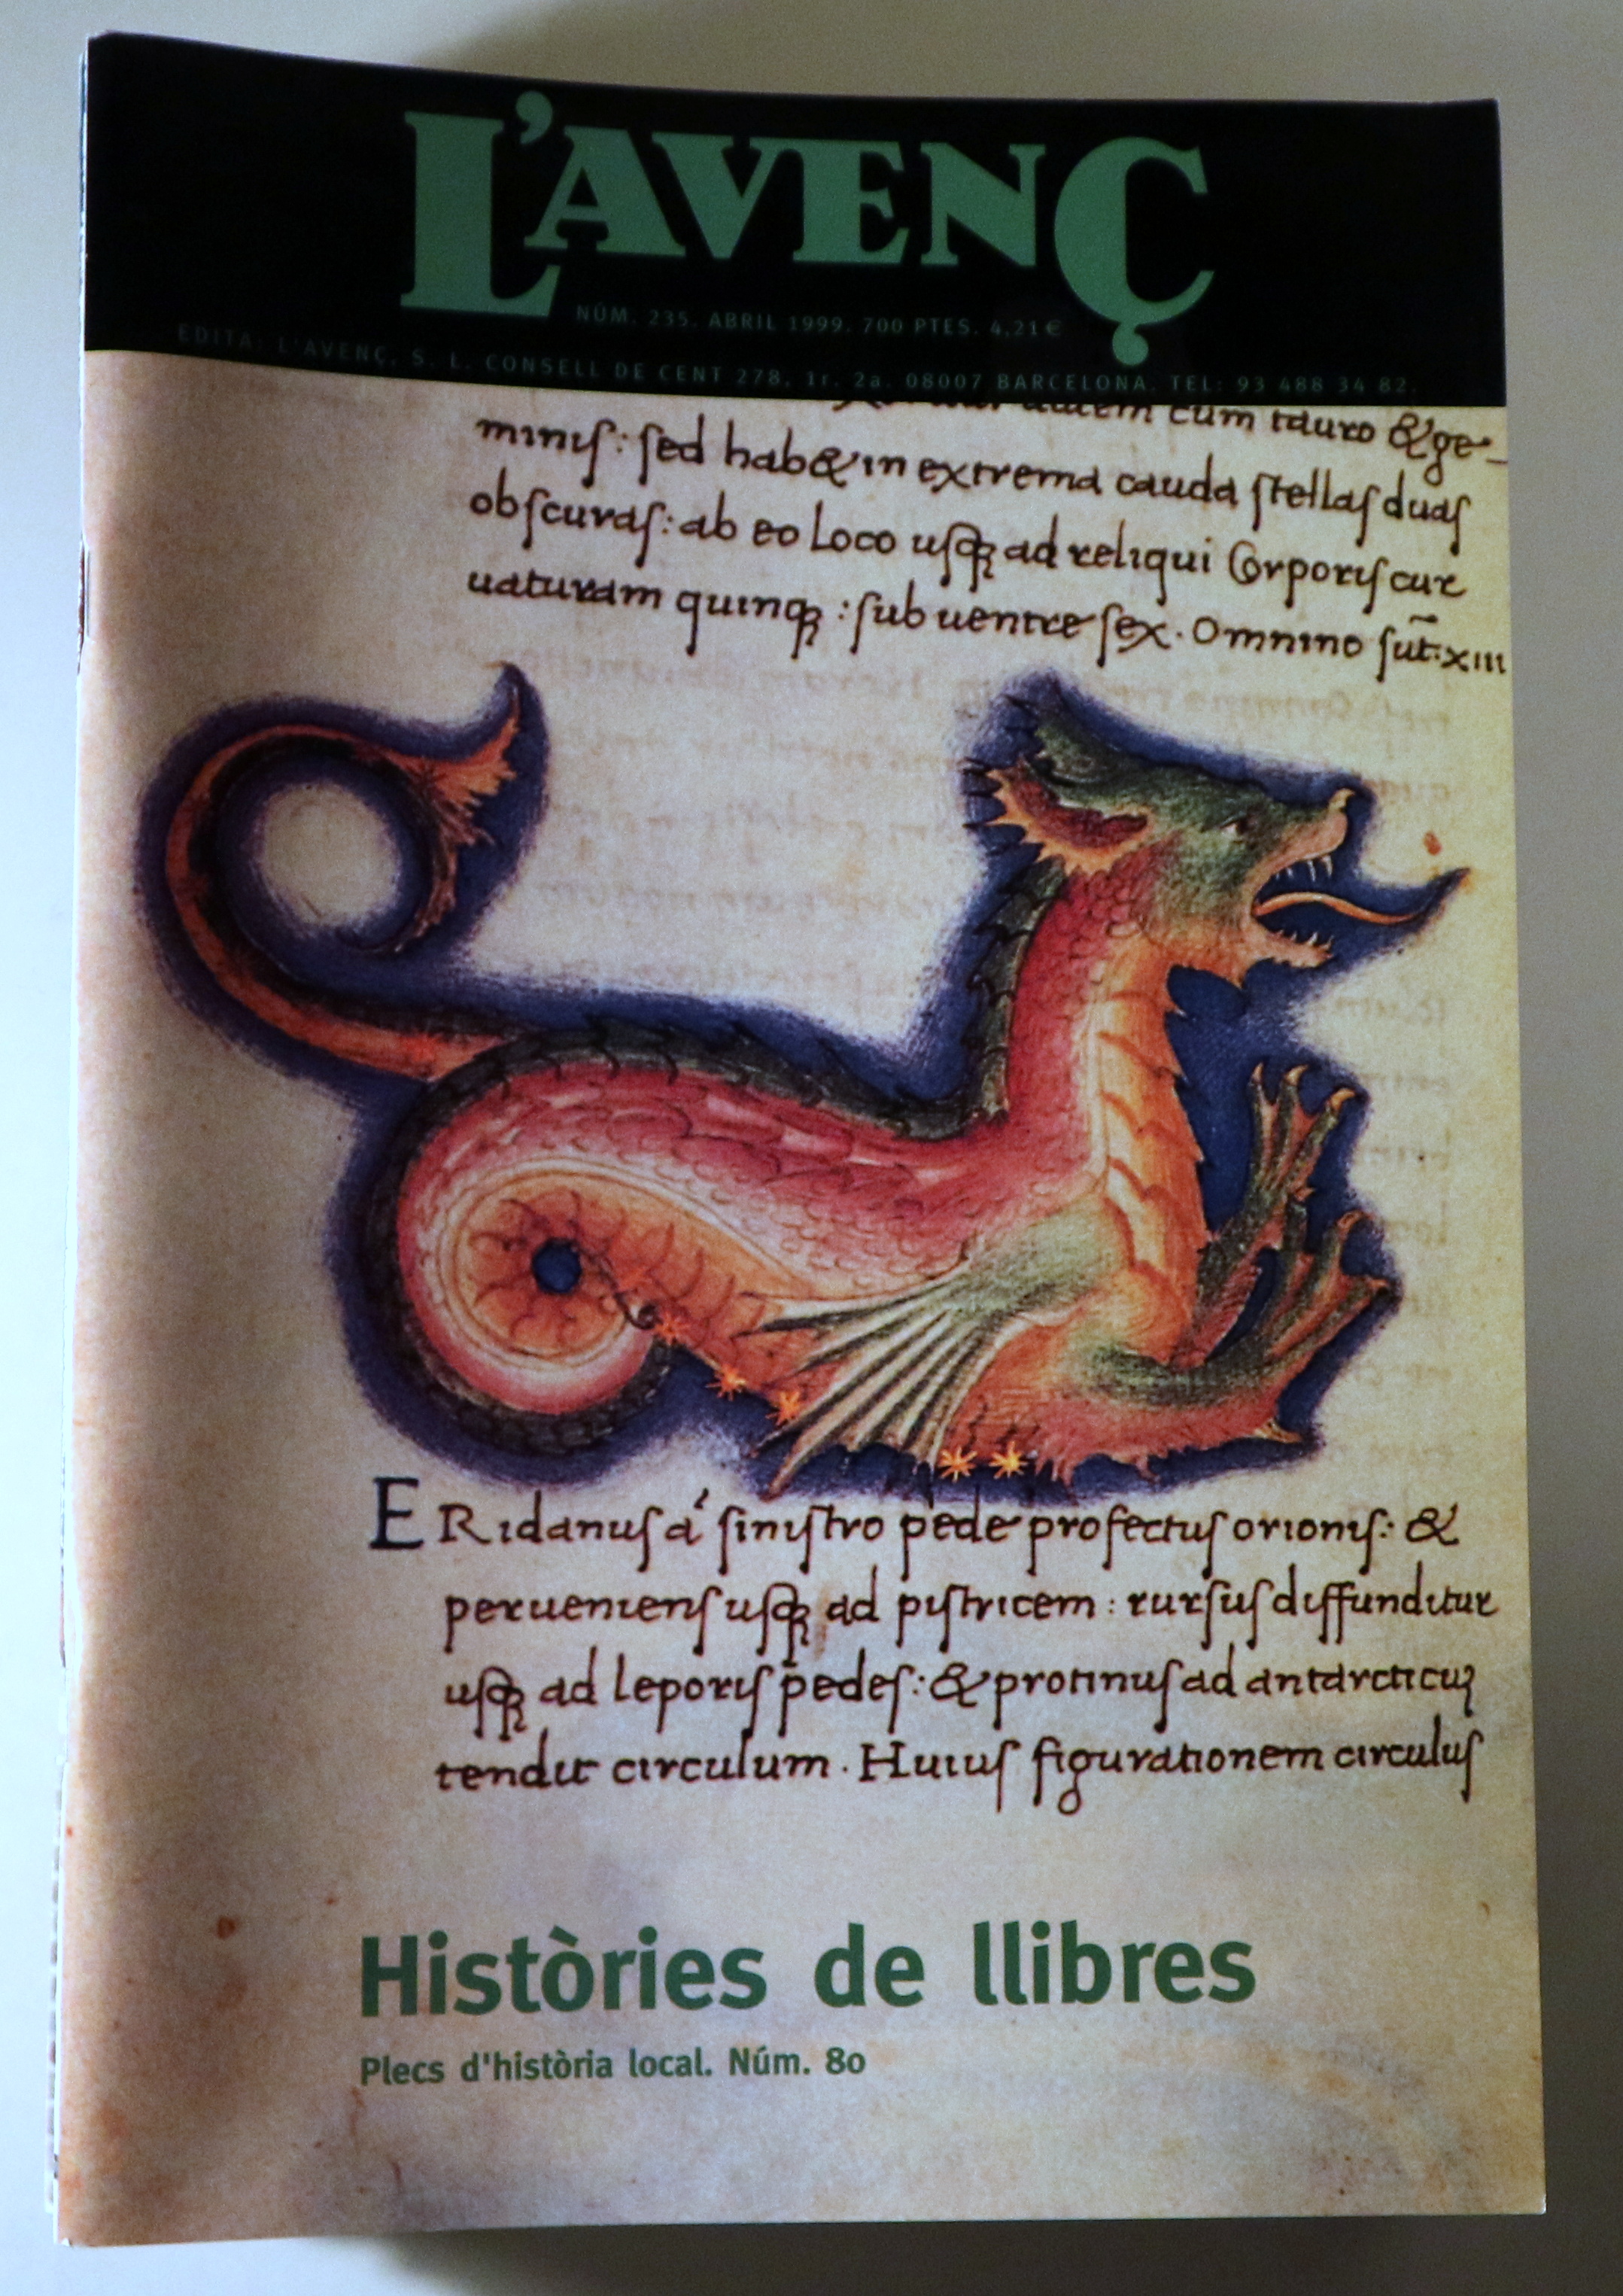 L'AVENÇ
NÚM. 235. ABRIL 1999. 700 PTES. 4,21 €
EDITA: L'AVENÇ, S. L. CONSELL DE CENT 278, 1r. 2a. 08007 BARCELONA. TEL: 93 488 34 82.
autem cum tauro & ge-
miniſ: ſed hab& in extrema cauda ſtellaſ duaſ
obſcuraſ: ab eo loco uſqꝫ ad reliqui Corporiſ cur
uaturam quinqꝫ: ſub uentre ſex. Omnino ſut̄: xiii
ERidanuſ á ſiniſtro pede profectuſ orioniſ: &
peruenienſ uſqꝫ ad piſtricem: rurſuſ diffunditur
uſqꝫ ad leporiſ pedeſ: & protinuſ ad antarcticuꝫ
tendit circulum. Huiuſ figurationem circuluſ
Històries de llibres
Plecs d'història local. Núm. 80